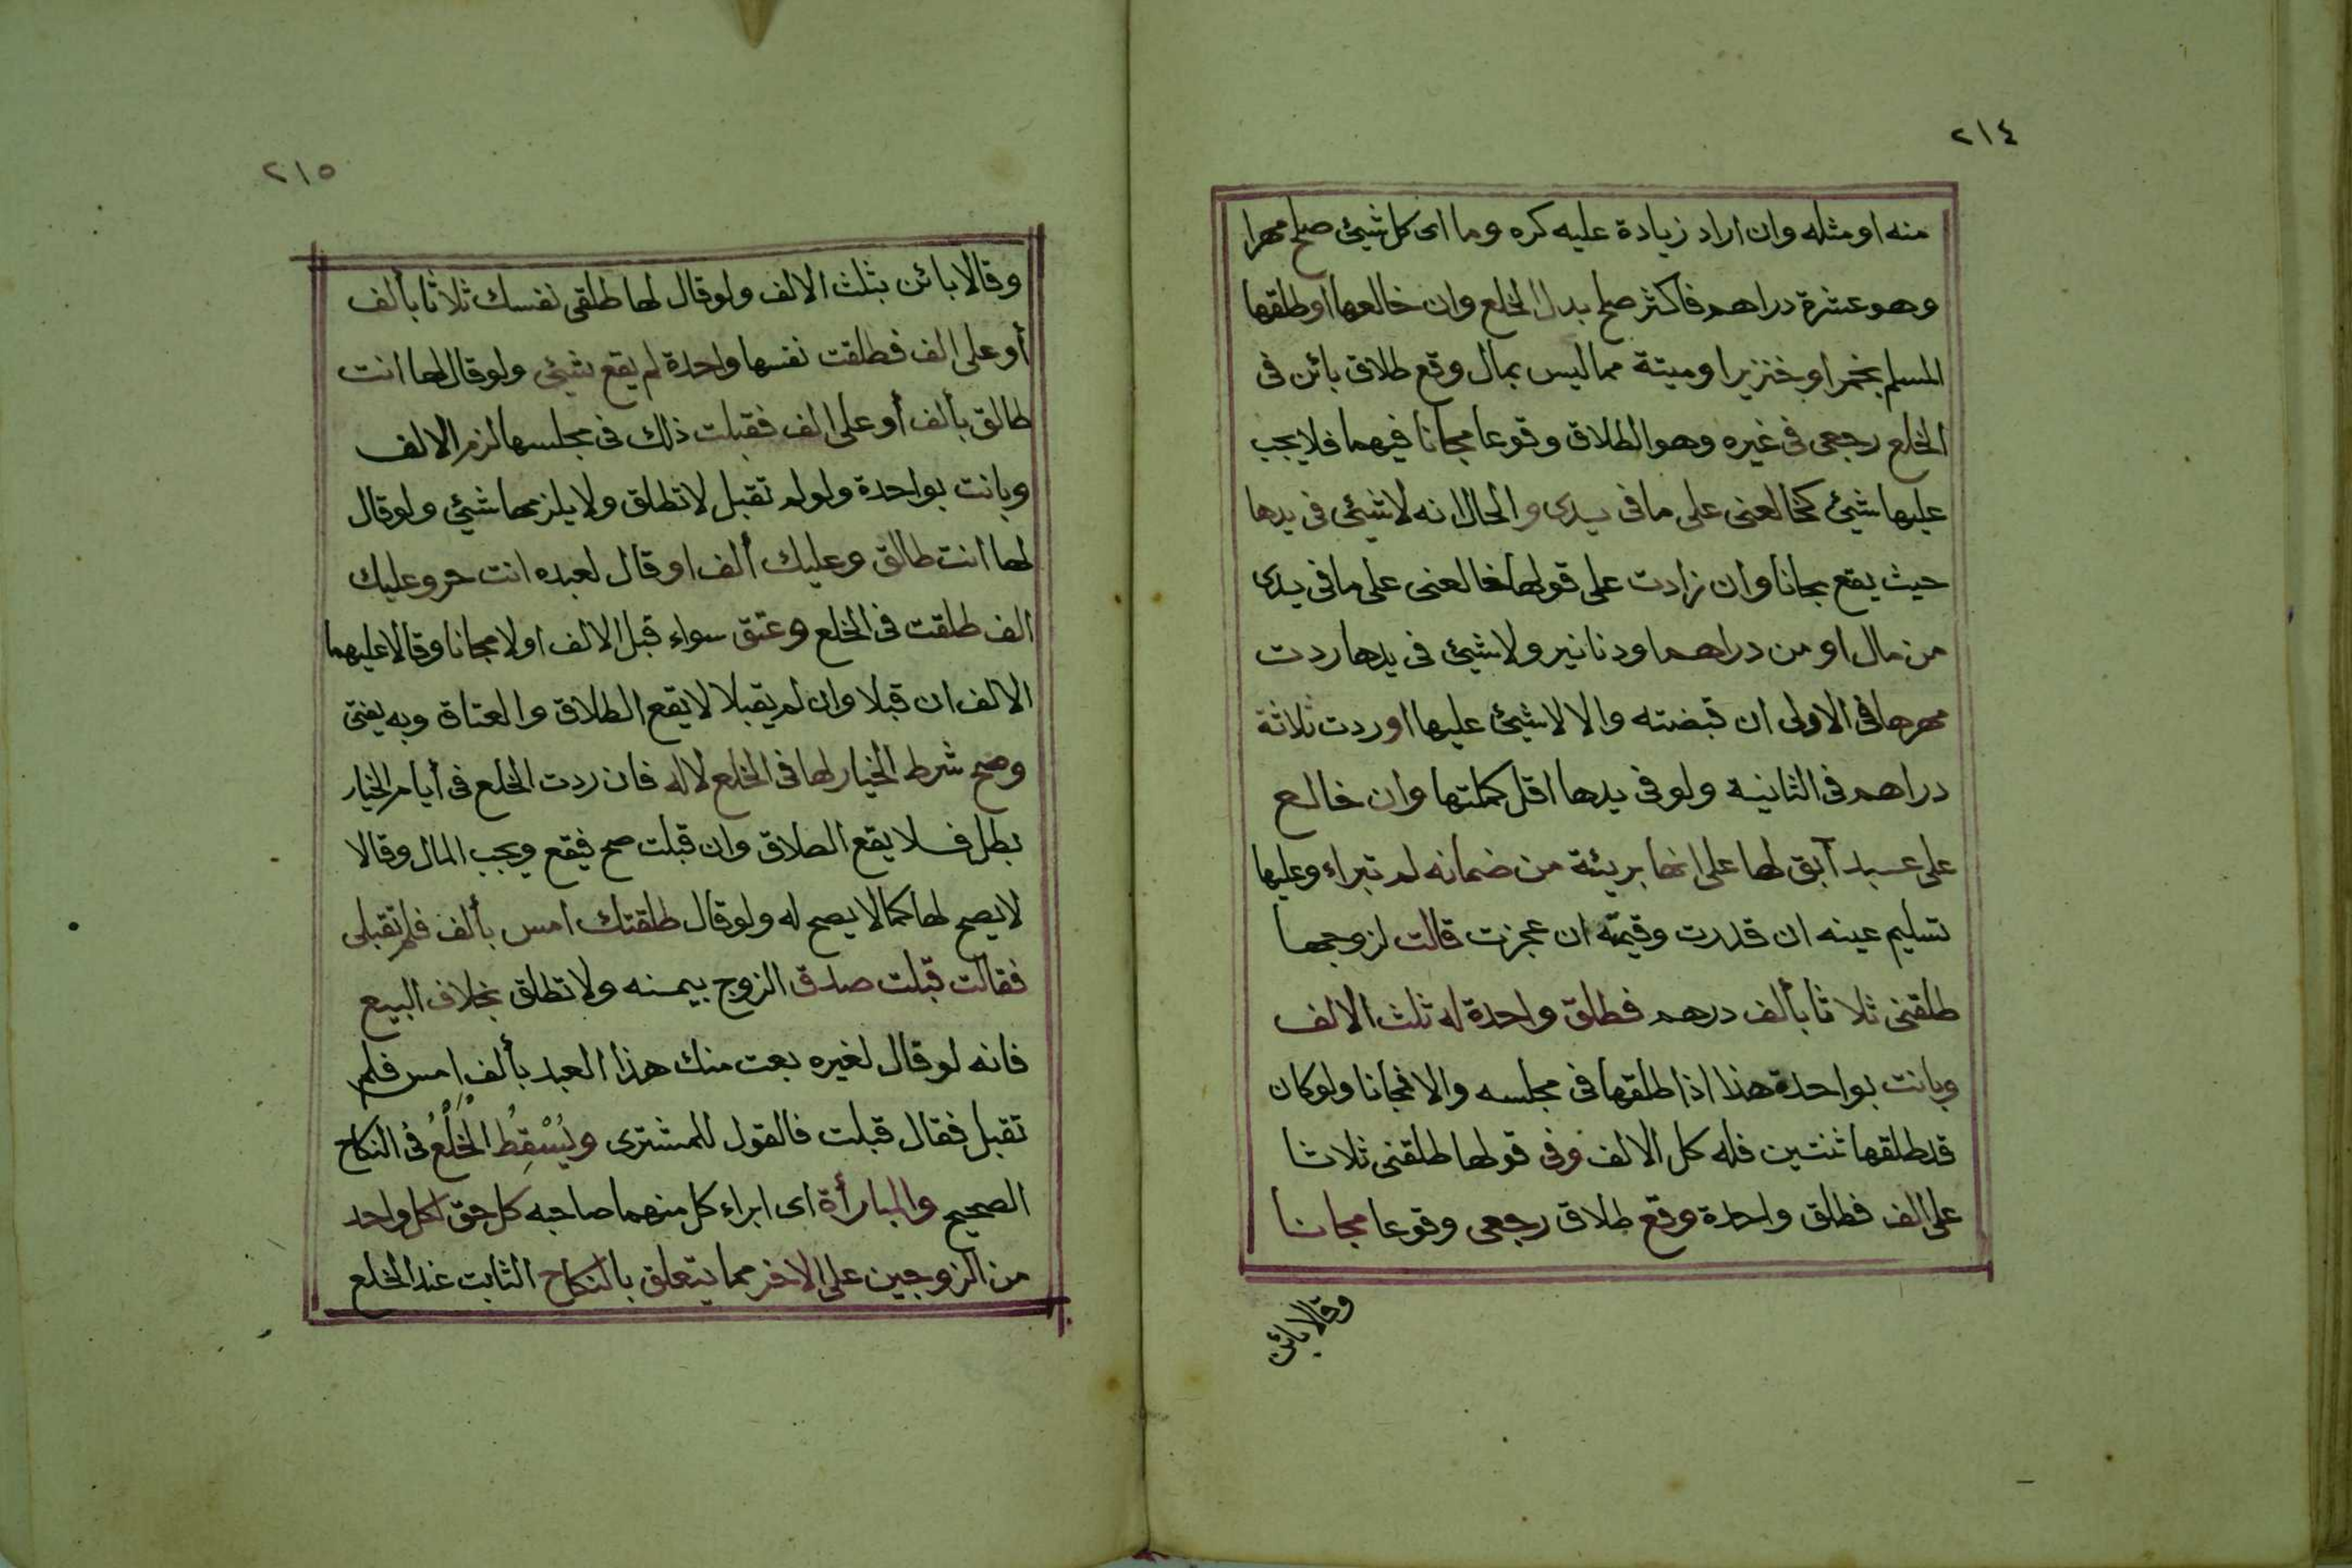 ٢١٤
منه او مثله وان اراد زيادة عليه كره وما اى كل شيئ صلح مهرا
وهو عشرة دراهم فاكثر صلح بدل الخلع وان خالعها او طلقها
المسلم بخمر او خنزير او ميتة مما ليس بمال وقع طلاق بائن فى
الخلع رجعى فى غيره وهو الطلاق وقوعا مجانا فيهما فلا يجب
عليها شيئ كخالعنى على ما فى يدى والحال انه لا شيئ فى يدها
حيث يقع مجانا وان زادت على قولها خالعنى على ما فى يدى
من مال او من دراهم او دنانير ولا شيئ فى يدها ردت
مهرها فى الاولى ان قبضته والا لا شيئ عليها او ردت ثلاثة
دراهم فى الثانية ولو فى يدها اقل كملتها وان خالع
على عبد آبق لها على انها بريئة من ضمانه لم تبراء وعليها
تسليم عينه ان قدرت وقيمته ان عجزت قالت لزوجها
طلقنى ثلاثا بألف درهم فطلق واحدة له ثلث الالف
وبانت بواحدة هذا اذا طلقها فى مجلسه والا فمجانا ولو كان
قد طلقها ثنتين فله كل الالف وفى قولها طلقنى ثلاثا
على الف فطلق واحدة وقع طلاق رجعى وقوعا مجانا
وقالا بائن
٢١٥
وقالا بائن بثلث الالف ولو قال لها طلقى نفسك ثلاثا بألف
أو على الف فطلقت نفسها واحدة لم يقع شيئ ولو قال لها انت
طالق بألف أو على الف فقبلت ذلك فى مجلسها لزم الالف
وبانت بواحدة ولو لم تقبل لا تطلق ولا يلزمها شيئ ولو قال
لها انت طالق وعليك ألف او قال لعبده انت حر وعليك
الف طلقت فى الخلع وعتق سواء قبل الالف اولا مجانا وقالا عليهما
الالف ان قبلا وان لم يقبلا لا يقع الطلاق والعتاق وبه يفتى
وصح شرط الخيار لها فى الخلع لا له فان ردت الخلع فى أيام الخيار
بطل فلا يقع الطلاق وان قبلت صح فيقع ويجب المال وقالا
لا يصح لها كما لا يصح له ولو قال طلقتك امس بألف فلم تقبلى
فقالت قبلت صدق الزوج بيمنه ولا تطلق بخلاف البيع
فانه لو قال لغيره بعت منك هذا العبد بألف امس فلم
تقبل فقال قبلت فالقول للمشترى ويُسْقِطُ الخُلْعُ فى النكاح
الصحيح والمبارأة اى ابراء كل منهما صاحبه كل حق لكل واحد
من الزوجين على الاخر مما يتعلق بالنكاح الثابت عند الخلع